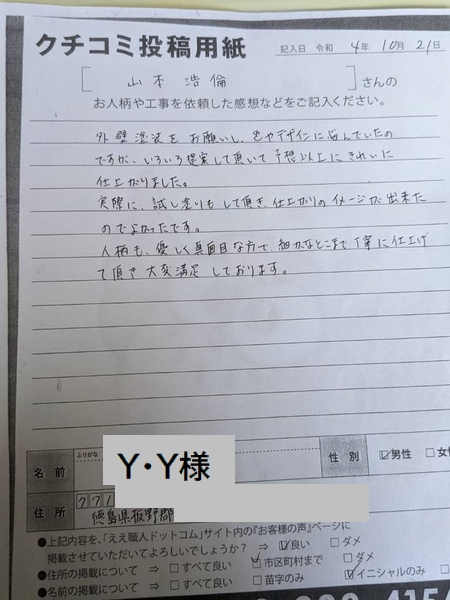 クチコミ投稿用紙
記入日 令和 4年 10月 21日
[ 山本 浩倫 ]さんの
お人柄や工事を依頼した感想などをご記入ください。
外壁塗装をお願いし、色やデザインに悩んでいたの
ですが、いろいろ提案して頂いて予想以上にきれいに
仕上がりました。
実際に、試し塗りもして頂き、仕上がりのイメージが出来た
のでよかったです。
人柄も、優しく真面目な方で、細かなとこまで丁寧に仕上げ
て頂き大変満足しております。
ふりがな
名前 Y・Y様 性別 ☑男性 □女
住所 771
徳島県板野郡
●上記内容を、「ええ職人ドットコム」サイト内の『お客様の声』ページに
掲載させていただいてよろしいでしょうか? ⇒ ☑良い □ダメ
●住所の掲載について ⇒ □すべて良い ☑市区町村まで □ダメ
●名前の掲載について ⇒ □すべて良い □苗字のみ ☑イニシャルのみ